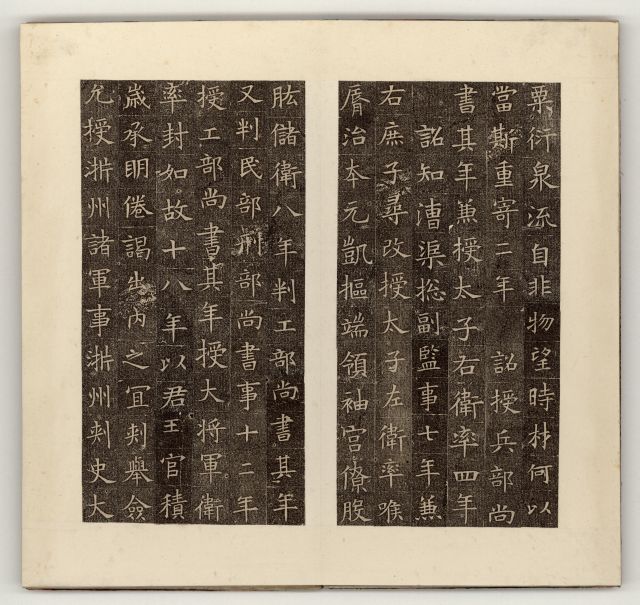 粟衍泉流自非物望時材何以
當斯重寄二年　詔授兵部尚
書其年兼授太子右衛率四年
詔知漕渠捴副監事七年兼
右庶子尋改授太子左衛率喉
脣治本元凱樞端領袖宮僚股
肱儲衛八年判工部尚書其年
又判民部刑部尚書事十二年
授工部尚書其年授大將軍衛
率封如故十八年以君王官積
歲承明倦謁出內之冝刾舉僉
允授淅州諸軍事淅州刾史大